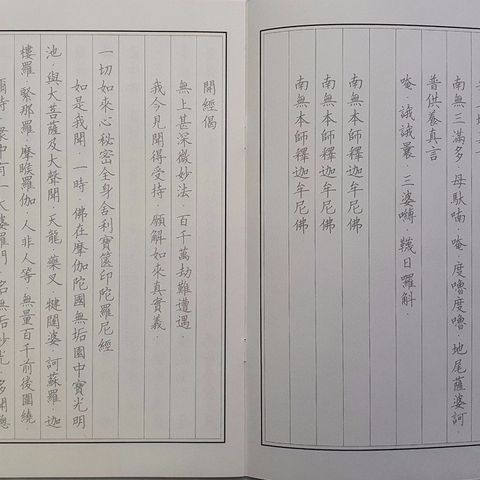 南無三滿多·母馱喃·唵·度嚕度嚕 地尾薩婆訶·
普供養真言
唵·誐誐曩·三婆嚩·韈日羅斛·
南無本師釋迦牟尼佛
南無本師釋迦牟尼佛
南無本師釋迦牟尼佛
開經偈
無上甚深微妙法·百千萬劫難遭遇·
我今見聞得受持·願解如來真實義·
一切如來心秘密全身舍利寶篋印陀羅尼經
如是我聞·一時·佛在摩伽陀國無垢園中寶光明
池·與大菩薩及大聲聞·天龍·藥叉·犍闥婆·訶蘇羅·迦
樓羅·緊那羅·摩睺羅伽·人非人等·無量百千前後圍繞
爾時·眾中有一大婆羅門·名無垢妙光·多聞聰